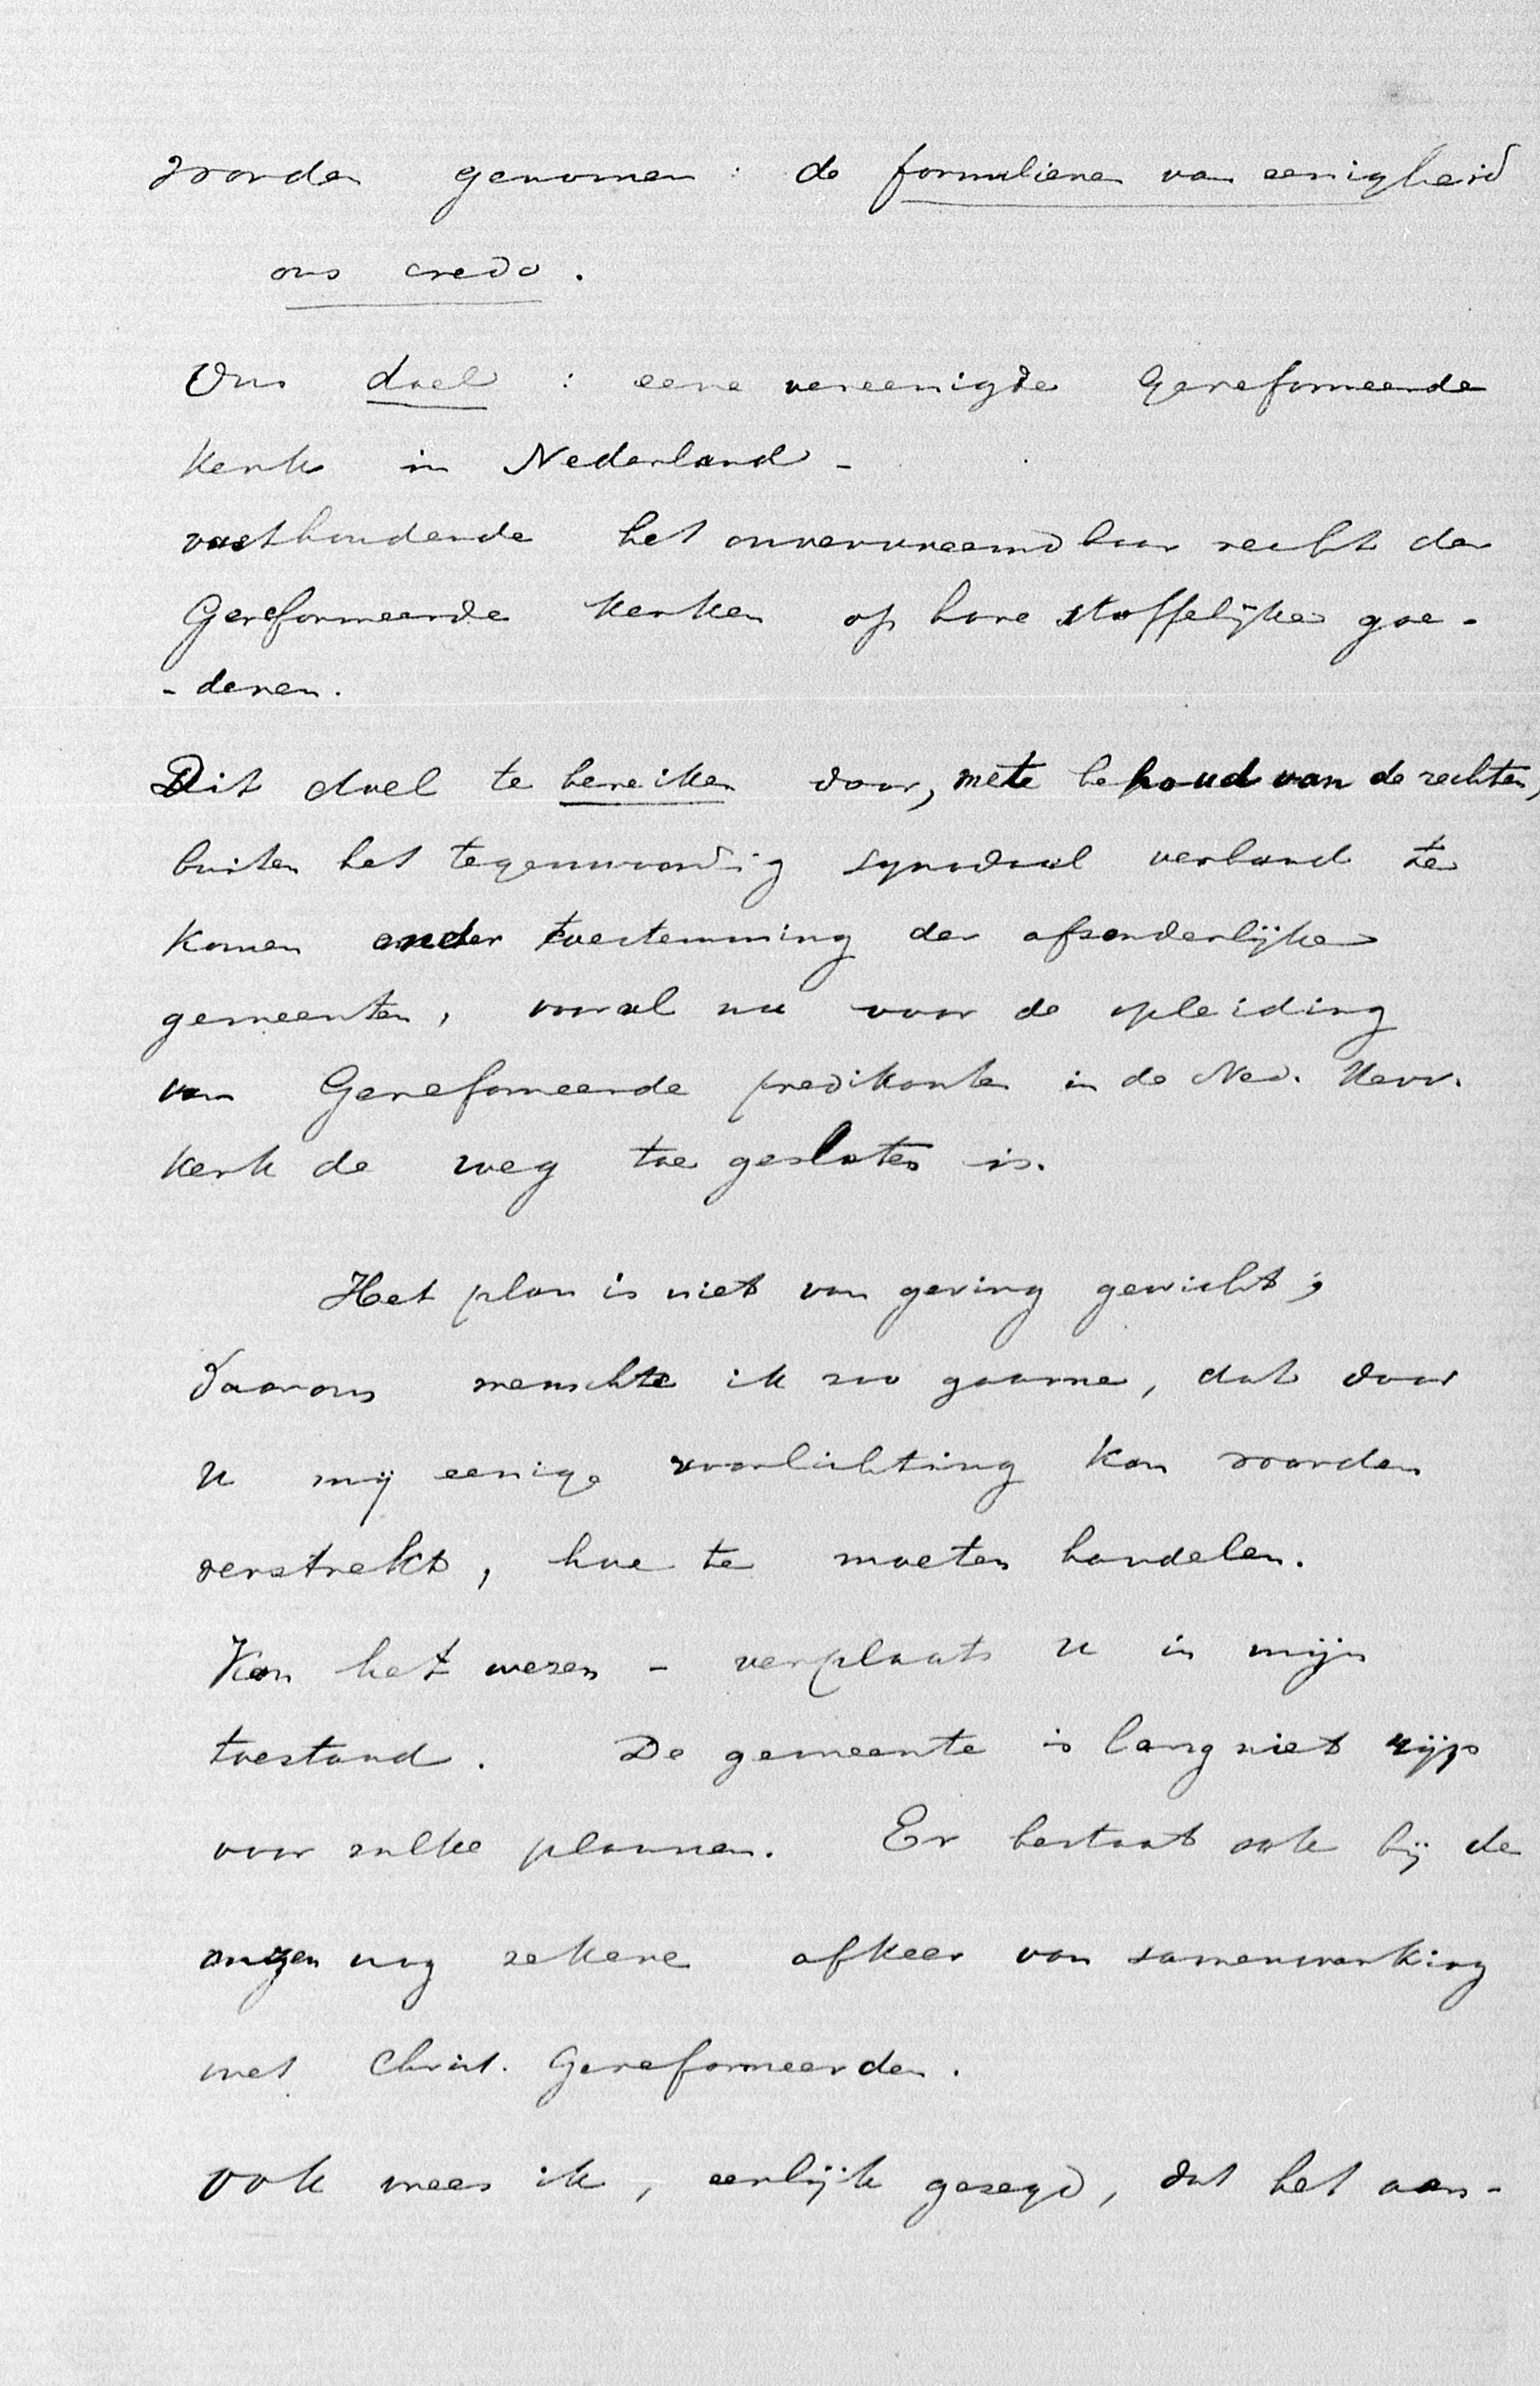 worden genomen: de formulieren van eenigheid
ons credo.
Ons doel: eene vereenigde Gereformeerde
Kerk in Nederland -
vasthoudende het onvervreemdbaar recht der
Gereformeerde Kerken op hare stoffelijke goe-
- deren.
Dit doel te bereiken door, mete behoud van de rechten,
buiten het tegenwoordig synodaal verband te
komen onder toestemming der afzonderlijke
gemeenten, vooral nu voor de opleiding
van Gereformeerde predikanten in de Ned. Herv.
Kerk de weg toe gesloten is.
Het plan is niet van gering gewicht;
daarom wenschte ik zoo gaarne, dat door
U mij eenige voorlichting kon worden
verstrekt, hoe te moeten handelen.
Kan het wezen - verplaats U in mijn
toestand. De gemeente is lang niet rijp
voor zulke plannen. Er bestaat ook bij de
onzen nog zekere afkeer van samenwerking
met Christ. Gereformeerden.
Ook vrees ik, eerlijk gezegd, dat het aan-